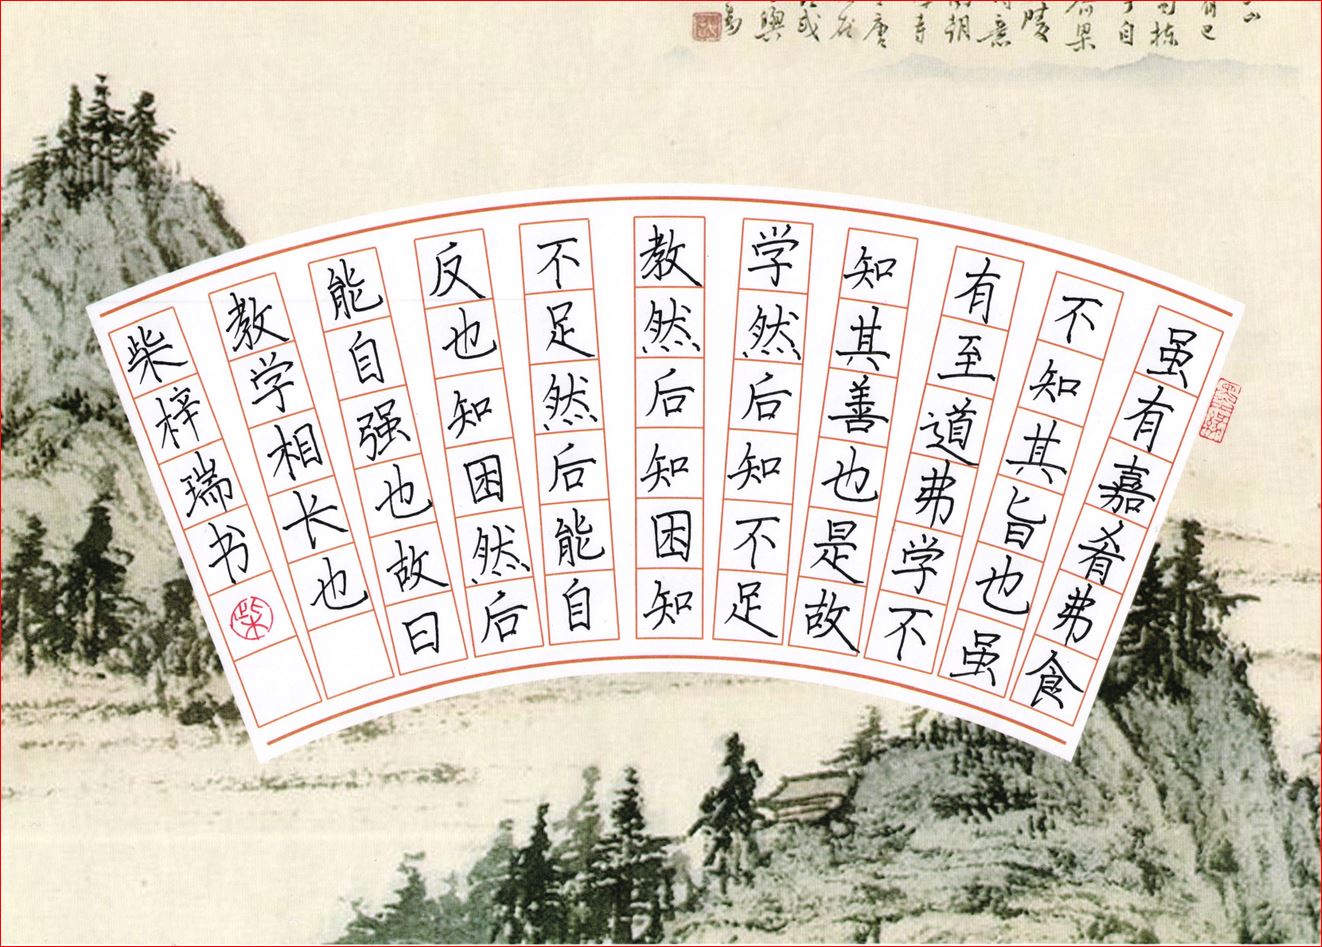 虽有嘉肴弗食
不知其旨也虽
有至道弗学不
知其善也是故
学然后知不足
教然后知困知
不足然后能自
反也知困然后
能自强也故曰
教学相长也
柴梓瑞书
柴